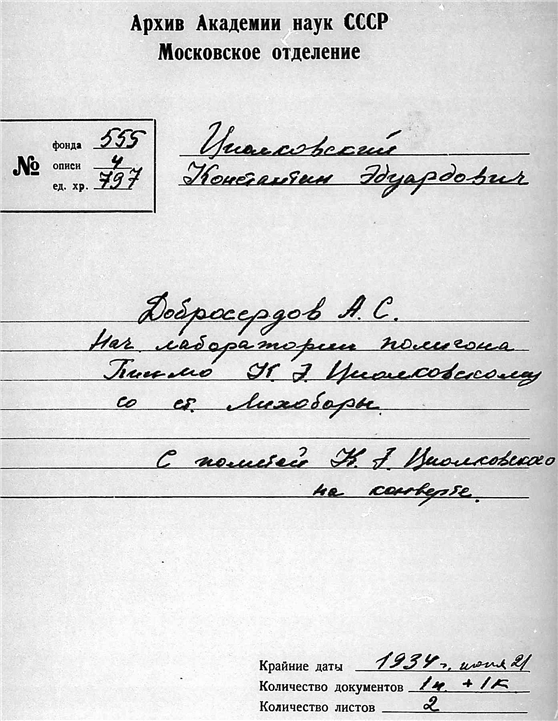 Архив Академии наук СССР
Московское отделение
№
фонда 555
описи 4
ед. хр. 797
Циолковский
Константин Эдуардович
Добросердов А. С.
Нач. лаборатории полигона
Письмо К. Э. Циолковскому
со ст. Лихоборы
С пометой К. Э. Циолковского
на конверте.
Крайние даты 1934 г. 21
Количество документов + 1к
Количество листов 2